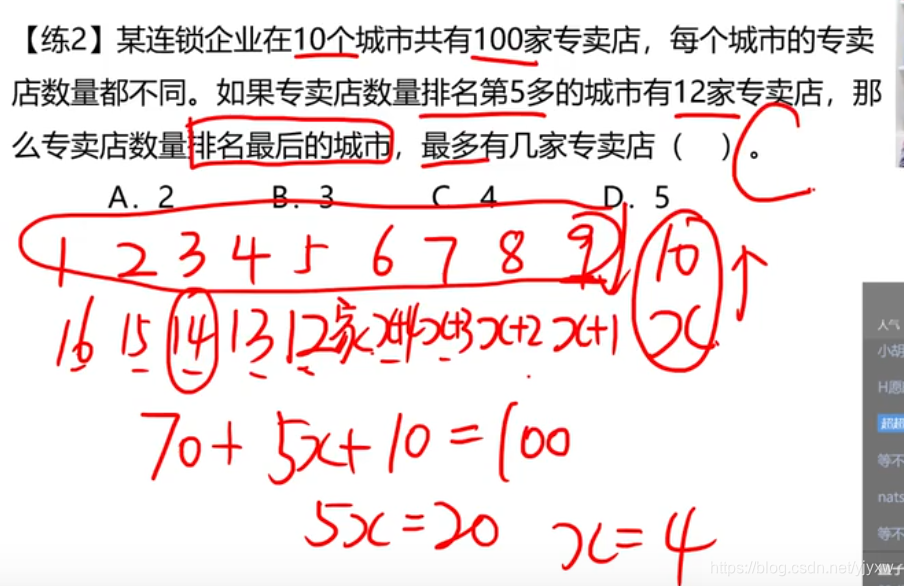 【练2】某连锁企业在10个城市共有100家专卖店，每个城市的专卖
店数量都不同。如果专卖店数量排名第5多的城市有12家专卖店，那
么专卖店数量排名最后的城市，最多有几家专卖店（ ）。 C
A. 2 B. 3 C 4 D. 5
1 2 3 4 5 6 7 8 9 10
16 15 14 13 12家 x+4 x+3 x+2 x+1 x
70+5x+10=100
5x=20 x=4
人气
小胡
H愿
超超
等不
nats
等不
https://blog.csdn.net/yjyxw